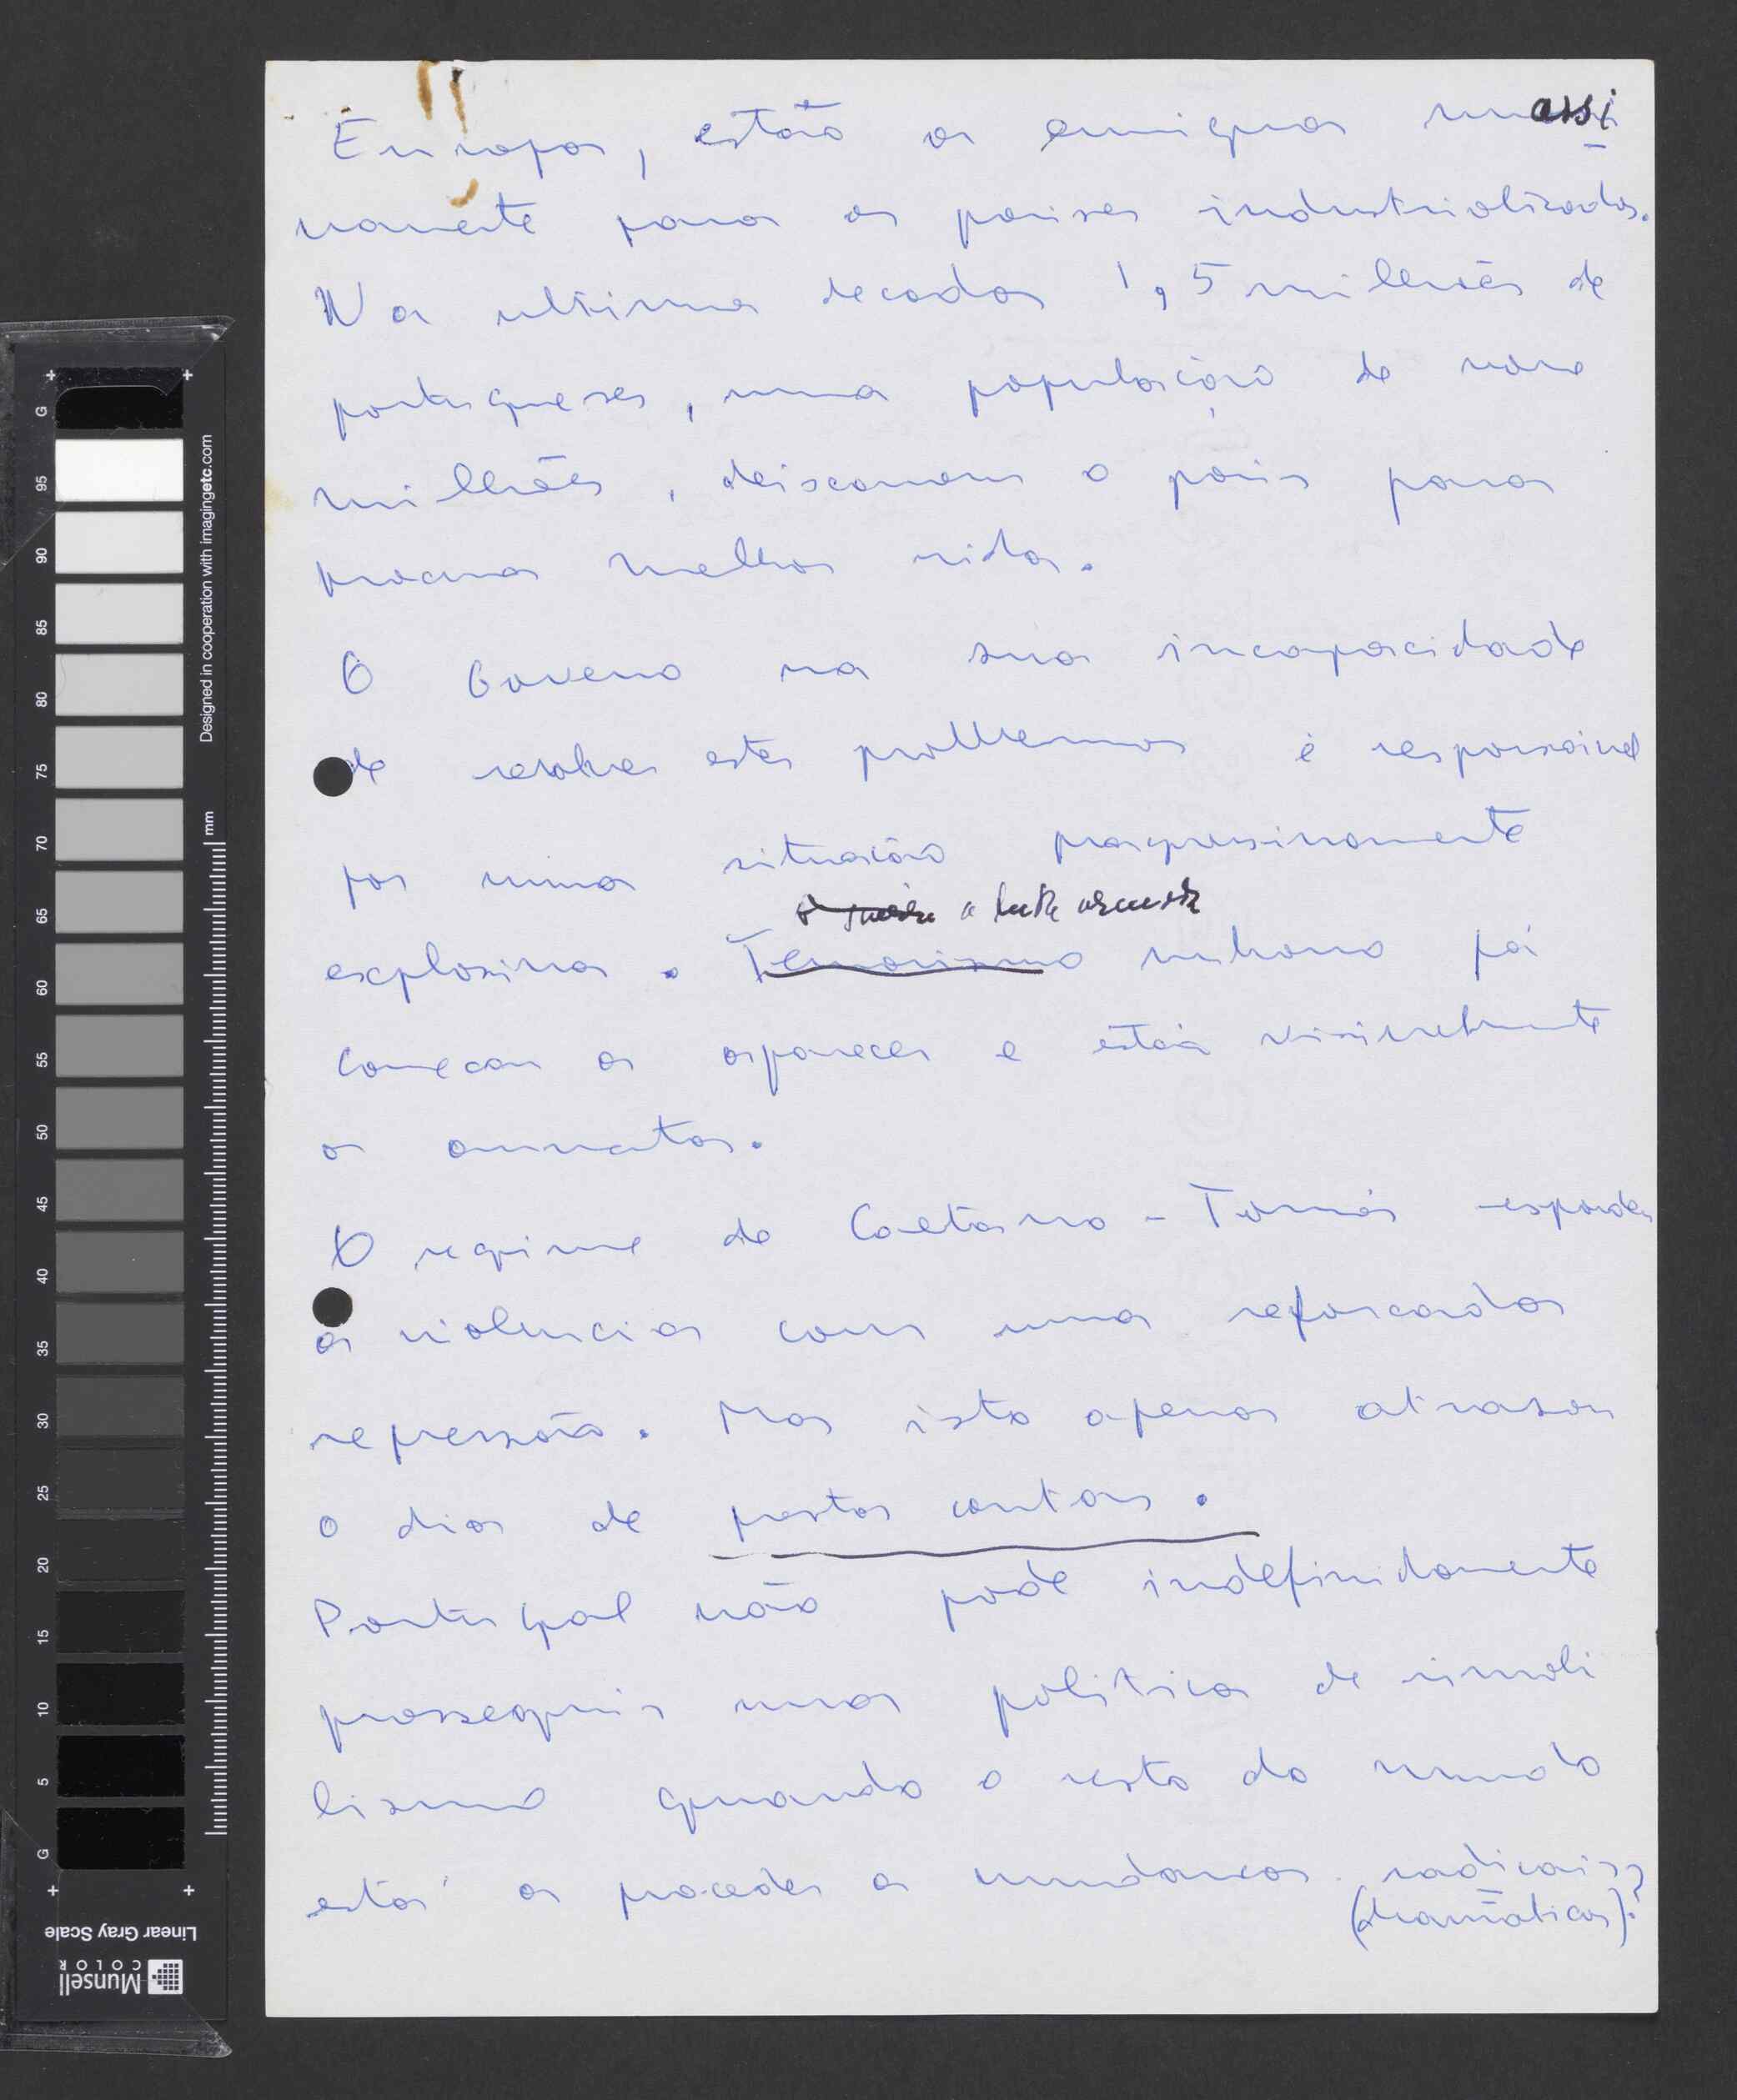 Europa, estão a emigrar massi
vamente para os paises industrializados.
Na ultima decada 1,5 milhões de
portugueses, numa população de nove
milhões, deixaram o pais para
procurar melhor vida.
O Governo na sua incapacidade
de resolver estes problemas é responsavel
por uma situação progressivamente
a luta armada
explosiva. Terrorismo urbano já
começou a aparecer e está visivelmente
a aumentar.
O regime de Caetano-Tomás responde
á violencia com uma reforcada
repressão. Mas isto apenas atrasou
o dia de prestar contas.
Portugal não pode indefinidamente
prosseguir uma politica de imobi
lismo quando o resto do mundo
está a proceder a mudancas radicais?
(dramáticas)?
G
95
90
85
80
75
70
65
60
55
50
45
40
35
30
25
20
15
10
5
G
Designed in cooperation with imagingetc.com
mm
Linear Gray Scale
Munsell
COLOR